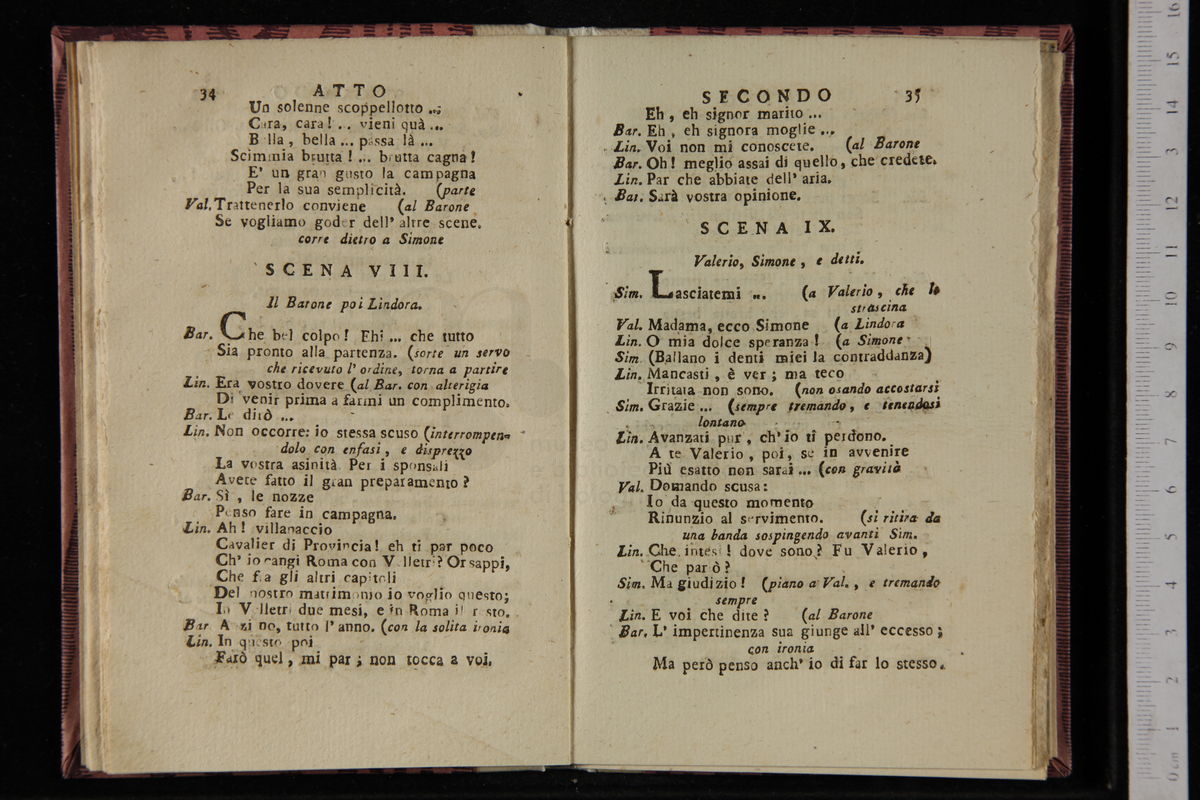 34 ATTO
Un solenne scoppellotto ...;
Cara, cara! .. vieni quà ...
B lla, bella ... passa là ...
Scimmia brutta! ... brutta cagna!
E' un gran gusto la campagna
Per la sua semplicità. (parte
Val. Trattenerlo conviene (al Barone
Se vogliamo goder dell' altre scene.
corre dietro a Simone
SCENA VIII.
Il Barone poi Lindora.
Bar. Che bel colpo! Ehi ... che tutto
Sia pronto alla partenza. (sorte un servo
che ricevuto l' ordine, torna a partire
Lin. Era vostro dovere (al Bar. con alterigia
Di venir prima a farmi un complimento.
Bar. Le dirò ...
Lin. Non occorre: io stessa scuso (interrompen-
dolo con enfasi, e disprezzo
La vostra asinità. Per i sponsali
Avete fatto il gran preparamento?
Bar. Sì, le nozze
Penso fare in campagna.
Lin. Ah! villanaccio
Cavalier di Provincia! eh ti par poco
Ch' io cangi Roma con V lletri? Or sappi,
Che fra gli altri capitoli
Del nostro matrimonio io voglio questo;
In V lletri due mesi, e in Roma il r sto.
Bar. A zi no, tutto l' anno. (con la solita ironia
Lin. In questo poi
Farò quel, mi par; non tocca a voi.
SECONDO 35
Eh, eh signor marito ...
Bar. Eh, eh signora moglie ...
Lin. Voi non mi conoscete. (al Barone
Bar. Oh! meglio assai di quello, che credete.
Lin. Par che abbiate dell' aria.
Bar. Sarà vostra opinione.
SCENA IX.
Valerio, Simone, e detti.
Sim. Lasciatemi ... (a Valerio, che lo
strascina
Val. Madama, ecco Simone (a Lindora
Lin. O mia dolce speranza! (a Simone
Sim. (Ballano i denti miei la contraddanza)
Lin. Mancasti, è ver; ma teco
Irritata non sono. (non osando accostarsi
Sim. Grazie ... (sempre tremando, e tenendosi
lontano
Lin. Avanzati pur, ch' io ti perdono.
A te Valerio, poi, se in avvenire
Più esatto non sarai ... (con gravità
Val. Domando scusa:
Io da questo momento
Rinunzio al servimento. (si ritira da
una banda sospingendo avanti Sim.
Lin. Che intesi! dove sono? Fu Valerio,
Che parlò?
Sim. Ma giudizio! (piano a Val., e tremando
sempre
Lin. E voi che dite? (al Barone
Bar. L' impertinenza sua giunge all' eccesso;
con ironia
Ma però penso anch' io di far lo stesso.